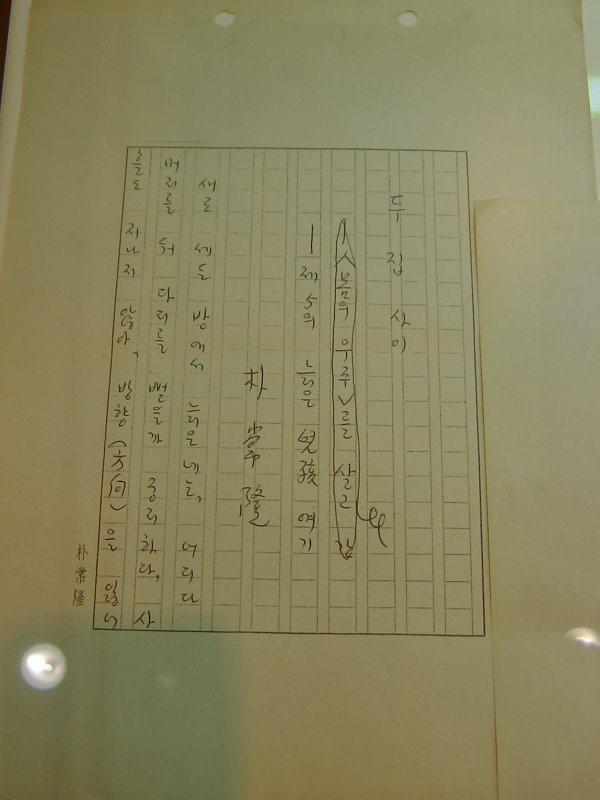 두 집 사이
〈몸의 우주〉를 살고 간
— 제5의 늙은 兒孩 얘기
朴常隆
새로 세든 방에서 늙은네는, 어디다
머리를 둬 다리를 뻗을까 궁리하다, 사
흘도 지나지 않아, 방향(方向)을
朴常隆